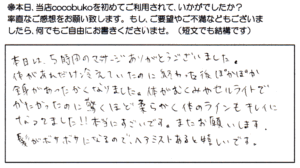 参本日、当店cocobukoを初めてご利用されて、いかがでしたか?
率直なご感想をお願い致します。もし、ご要望やご不満などもございま
したら、何でもご自由にお書きくださいませ。(短文でも結構です)
本日は、5時間のマッサージありがとうございました。
体があれだけ冷えていたのに 終わった後ぽかぽか
全身があったかくなりました。体がむくみやセルライトで
かたかったのに驚くほど柔らかく体のラインもキレイに
なってました!!本当にすごいです。またお願いします。
髪がボサボサになるので、ヘアミストあると嬉しいです。